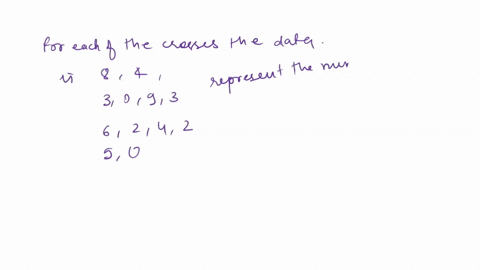 for each of the classes the data.
is 8, 4,
3, 0, 9, 3
represent the num
6, 2, 4, 2
5, 0